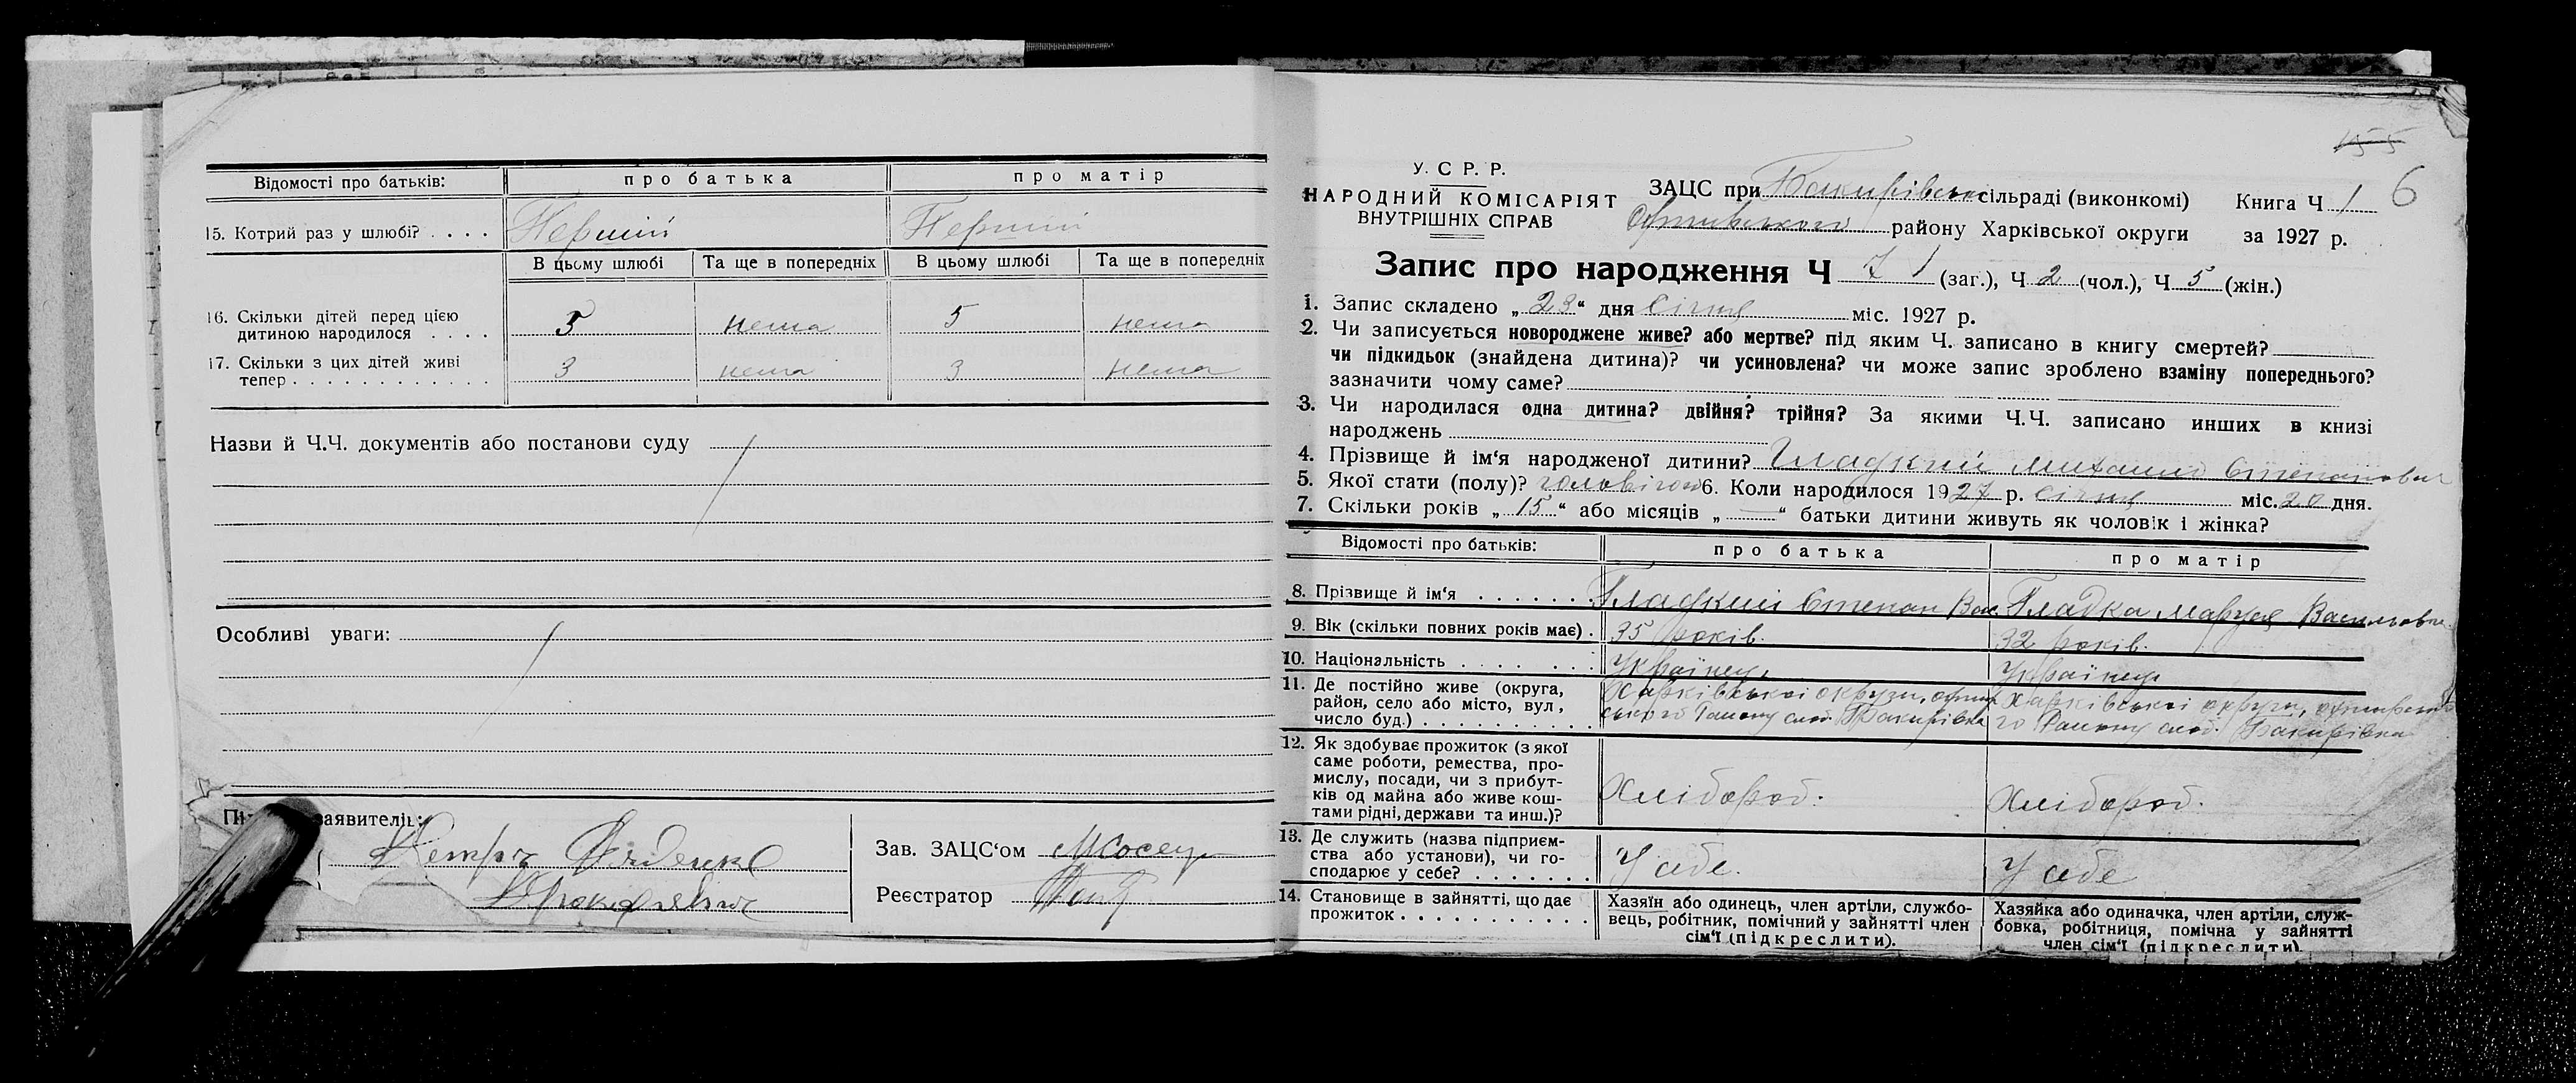 Відомості про батьків: про батька про матір
15. Котрий раз у шлюбі? . . . . Перший Перший
В цьому шлюбі Та ще в попередніх В цьому шлюбі Та ще в попередніх
16. Скільки дітей перед цією
дитиною народилося . . . . 5 нема 5 нема
17. Скільки з цих дітей живі
тепер . . . . . . . . . . . . . 3 нема 3 нема
Назви й Ч.Ч. документів або постанови суду
Особливі уваги:
заявителів:
Зав. ЗАЦС‘ом
Реєстратор
155
6
У. С Р. Р.
НАРОДНИЙ КОМІСАРІЯТ
ВНУТРІШНІХ СПРАВ
ЗАЦС при Бакирівськ сільраді (виконкомі) Книга Ч 1
району Харківської округи за 1927 р.
Запис про народження Ч 7 (заг.), Ч 2 (чол.), Ч 5 (жін.)
1. Запис складено „23“ дня Січня міс. 1927 р.
2. Чи записується новороджене живе? або мертве? під яким Ч. записано в книгу смертей?
чи підкидьок (знайдена дитина)? чи усиновлена? чи може запис зроблено взаміну попереднього?
зазначити чому саме?
3. Чи народилася одна дитина? двійня? трійня? За якими Ч.Ч. записано инших в книзі
народжень
4. Прізвище й ім‘я народженої дитини? Гладкий Михаило Степанович
5. Якої стати (полу)? чоловічого 6. Коли народилося 1927 р. січня міс. 20 дня.
7. Скільки років „15“ або місяців „—“ батьки дитини живуть як чоловік і жінка?
Відомості про батьків: про батька про матір
8. Прізвище й ім‘я . . . . . . . Гладкий Степан Вас Гладка Маруся Васильовна
9. Вік (скільки повних років має) . 35 років. 32 років.
10. Національність . . . . . . . Українец. Українец
11. Де постійно живе (округа,
район, село або місто, вул,
число буд.) . . . . . . . . . . Харківськоі округи, ського Району слоб. Бакирівка Харківськоі округи, го Району слоб. Бакирівка
12. Як здобуває прожиток (з якої
саме роботи, ремества, про-
мислу, посади, чи з прибут-
ків од майна або живе кош-
тами рідні, держави та инш.)? Хлібороб. Хлібороб.
13. Де служить (назва підприєм-
ства або установи), чи го-
сподарює у себе? . . . . . . . У себе. У себе
14. Становище в зайнятті, що дає
прожиток . . . . . . . . . . .
Хазяїн або одинець, член артіли, службо-
вець, робітник, помічний у зайнятті член
сім‘ї (підкреслити).
Хазяйка або одиначка, член артіли, служ-
бовка, робітниця, помічна у зайнятті
член сім‘ї (підкреслити).